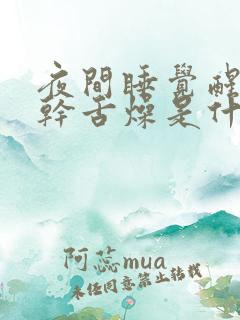 夜間睡覺醒
幹舌燥是什
阿蕊mua
未经同意禁止转载